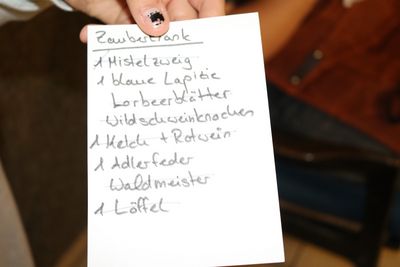 Zaubertrank
1 Mistelzweig
1 blaue Lapizie
Lorbeerblätter
Wildschweinknochen
1 Kelch + Rotwein
1 Adlerfeder
Waldmeister
1 Löffel